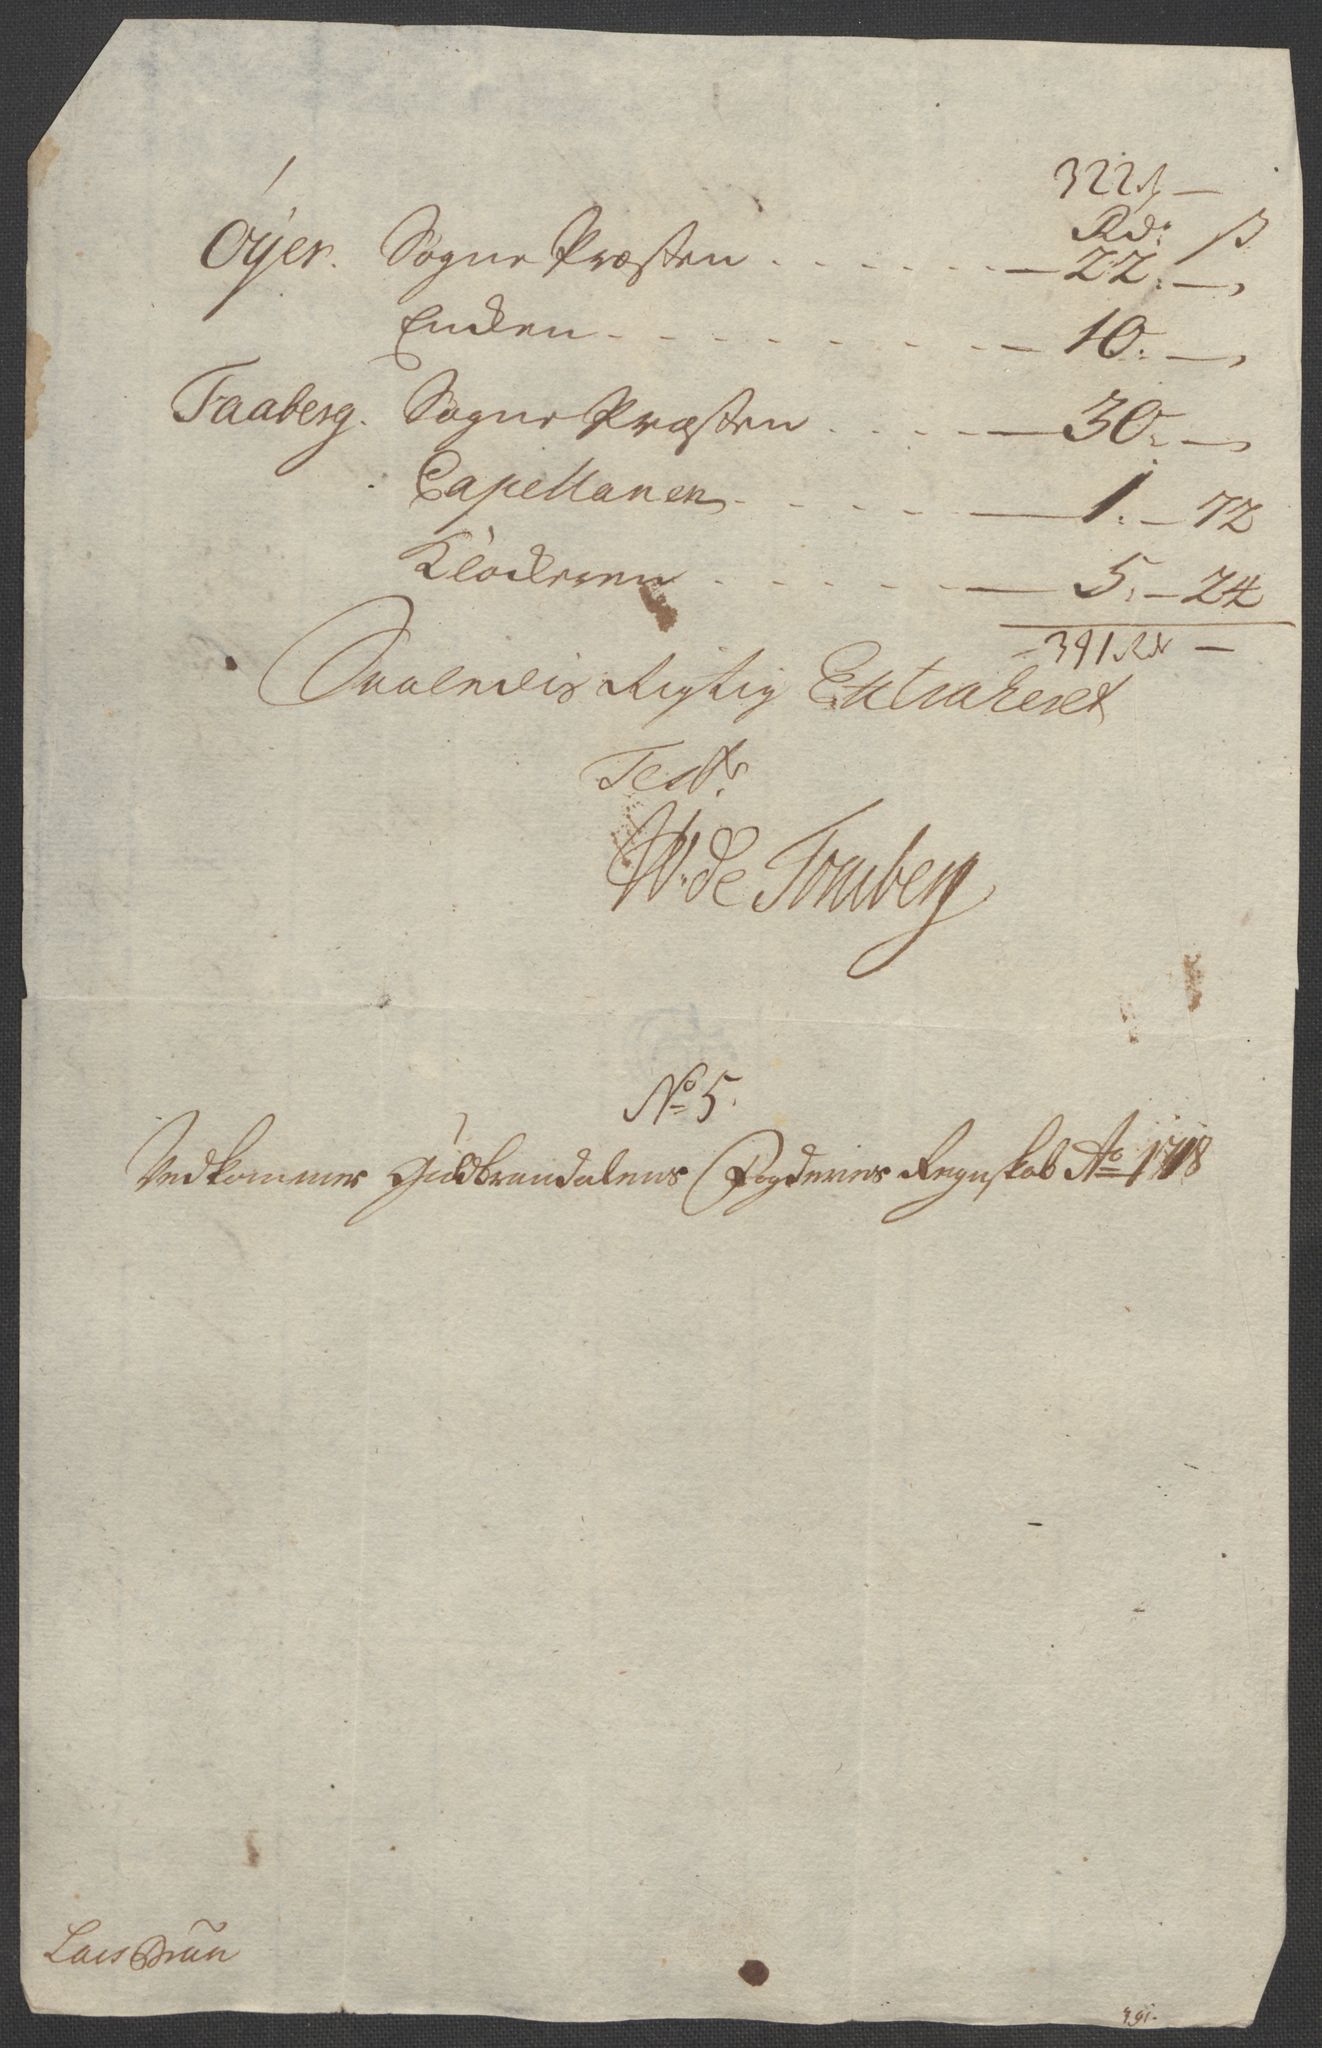 322 –
Rd: ß
Öÿer. Sogne Præsten . . . . . . — 22: —,
Encken . . . . . . . — 10: —,
Faaberg. Sogne Præsten . . . . — 30: —,
Capellanen . . . . . — 1: – 72
Klockeren . . . . . — 5: – 24
391 Rd –
Saaledis Rigtig Extraheret
Test:
W: de Tonsberg
No 5.
Vedkommer Guldbrandsdalens Fogderies Regnskab Ao 1718
Lars Brun
391.